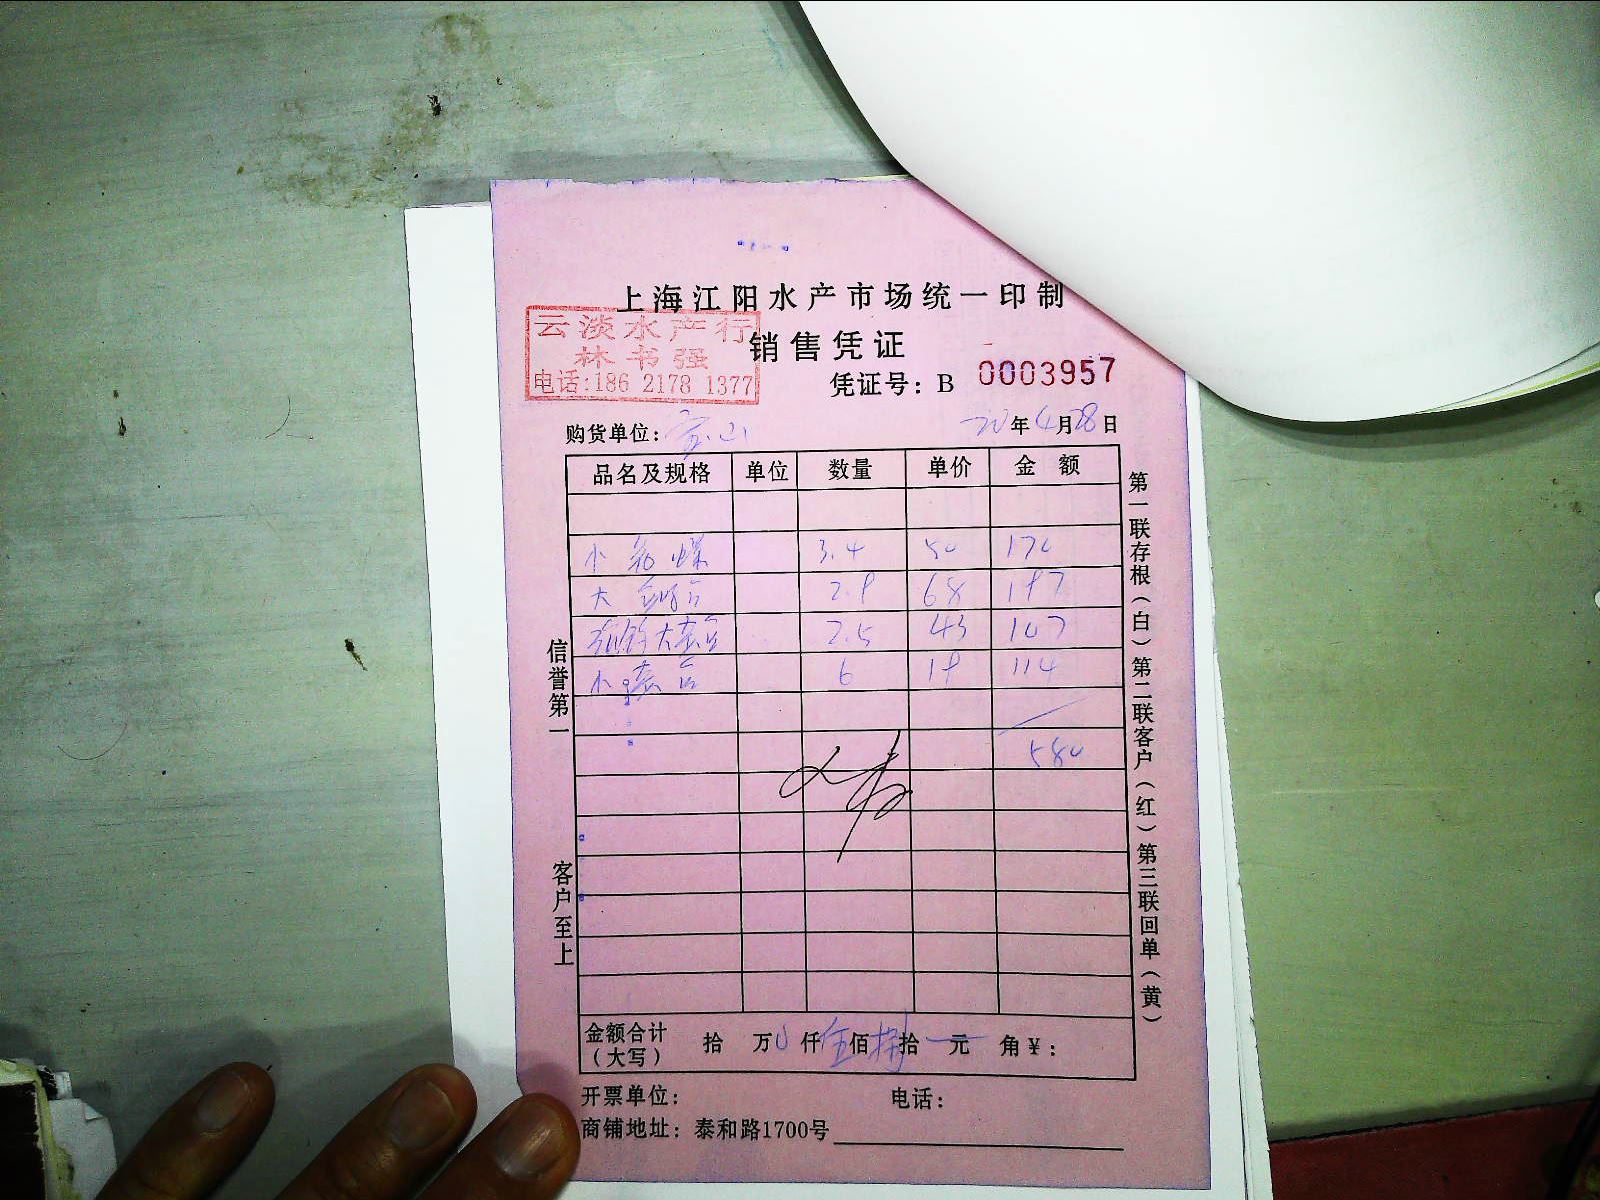 上海江阳水产市场统一印制
云淡水产行
林书强
电话:186 2178 1377
销售凭证
凭证号: B 0003957
购货单位: 宝山 20年4月28日
品名及规格 单位 数量 单价 金 额
小 3.4 50 170
大 2.9 68 197
大 2.5 43 107
小 6 19 114
580
金额合计（大写） 拾 万 0 仟 伍 佰 捌 拾 元 角 ¥:
开票单位: 电话:
商铺地址: 泰和路1700号
信誉第一
客户至上
第一联存根(白)第二联客户(红)第三联回单(黄)